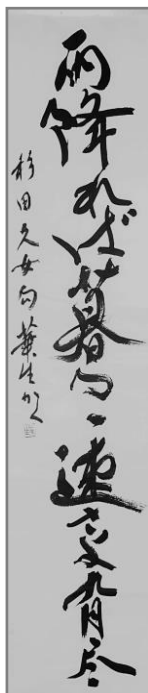 雨降れば暮るゝ速さよ九月尽
杉田久女句 華生かく